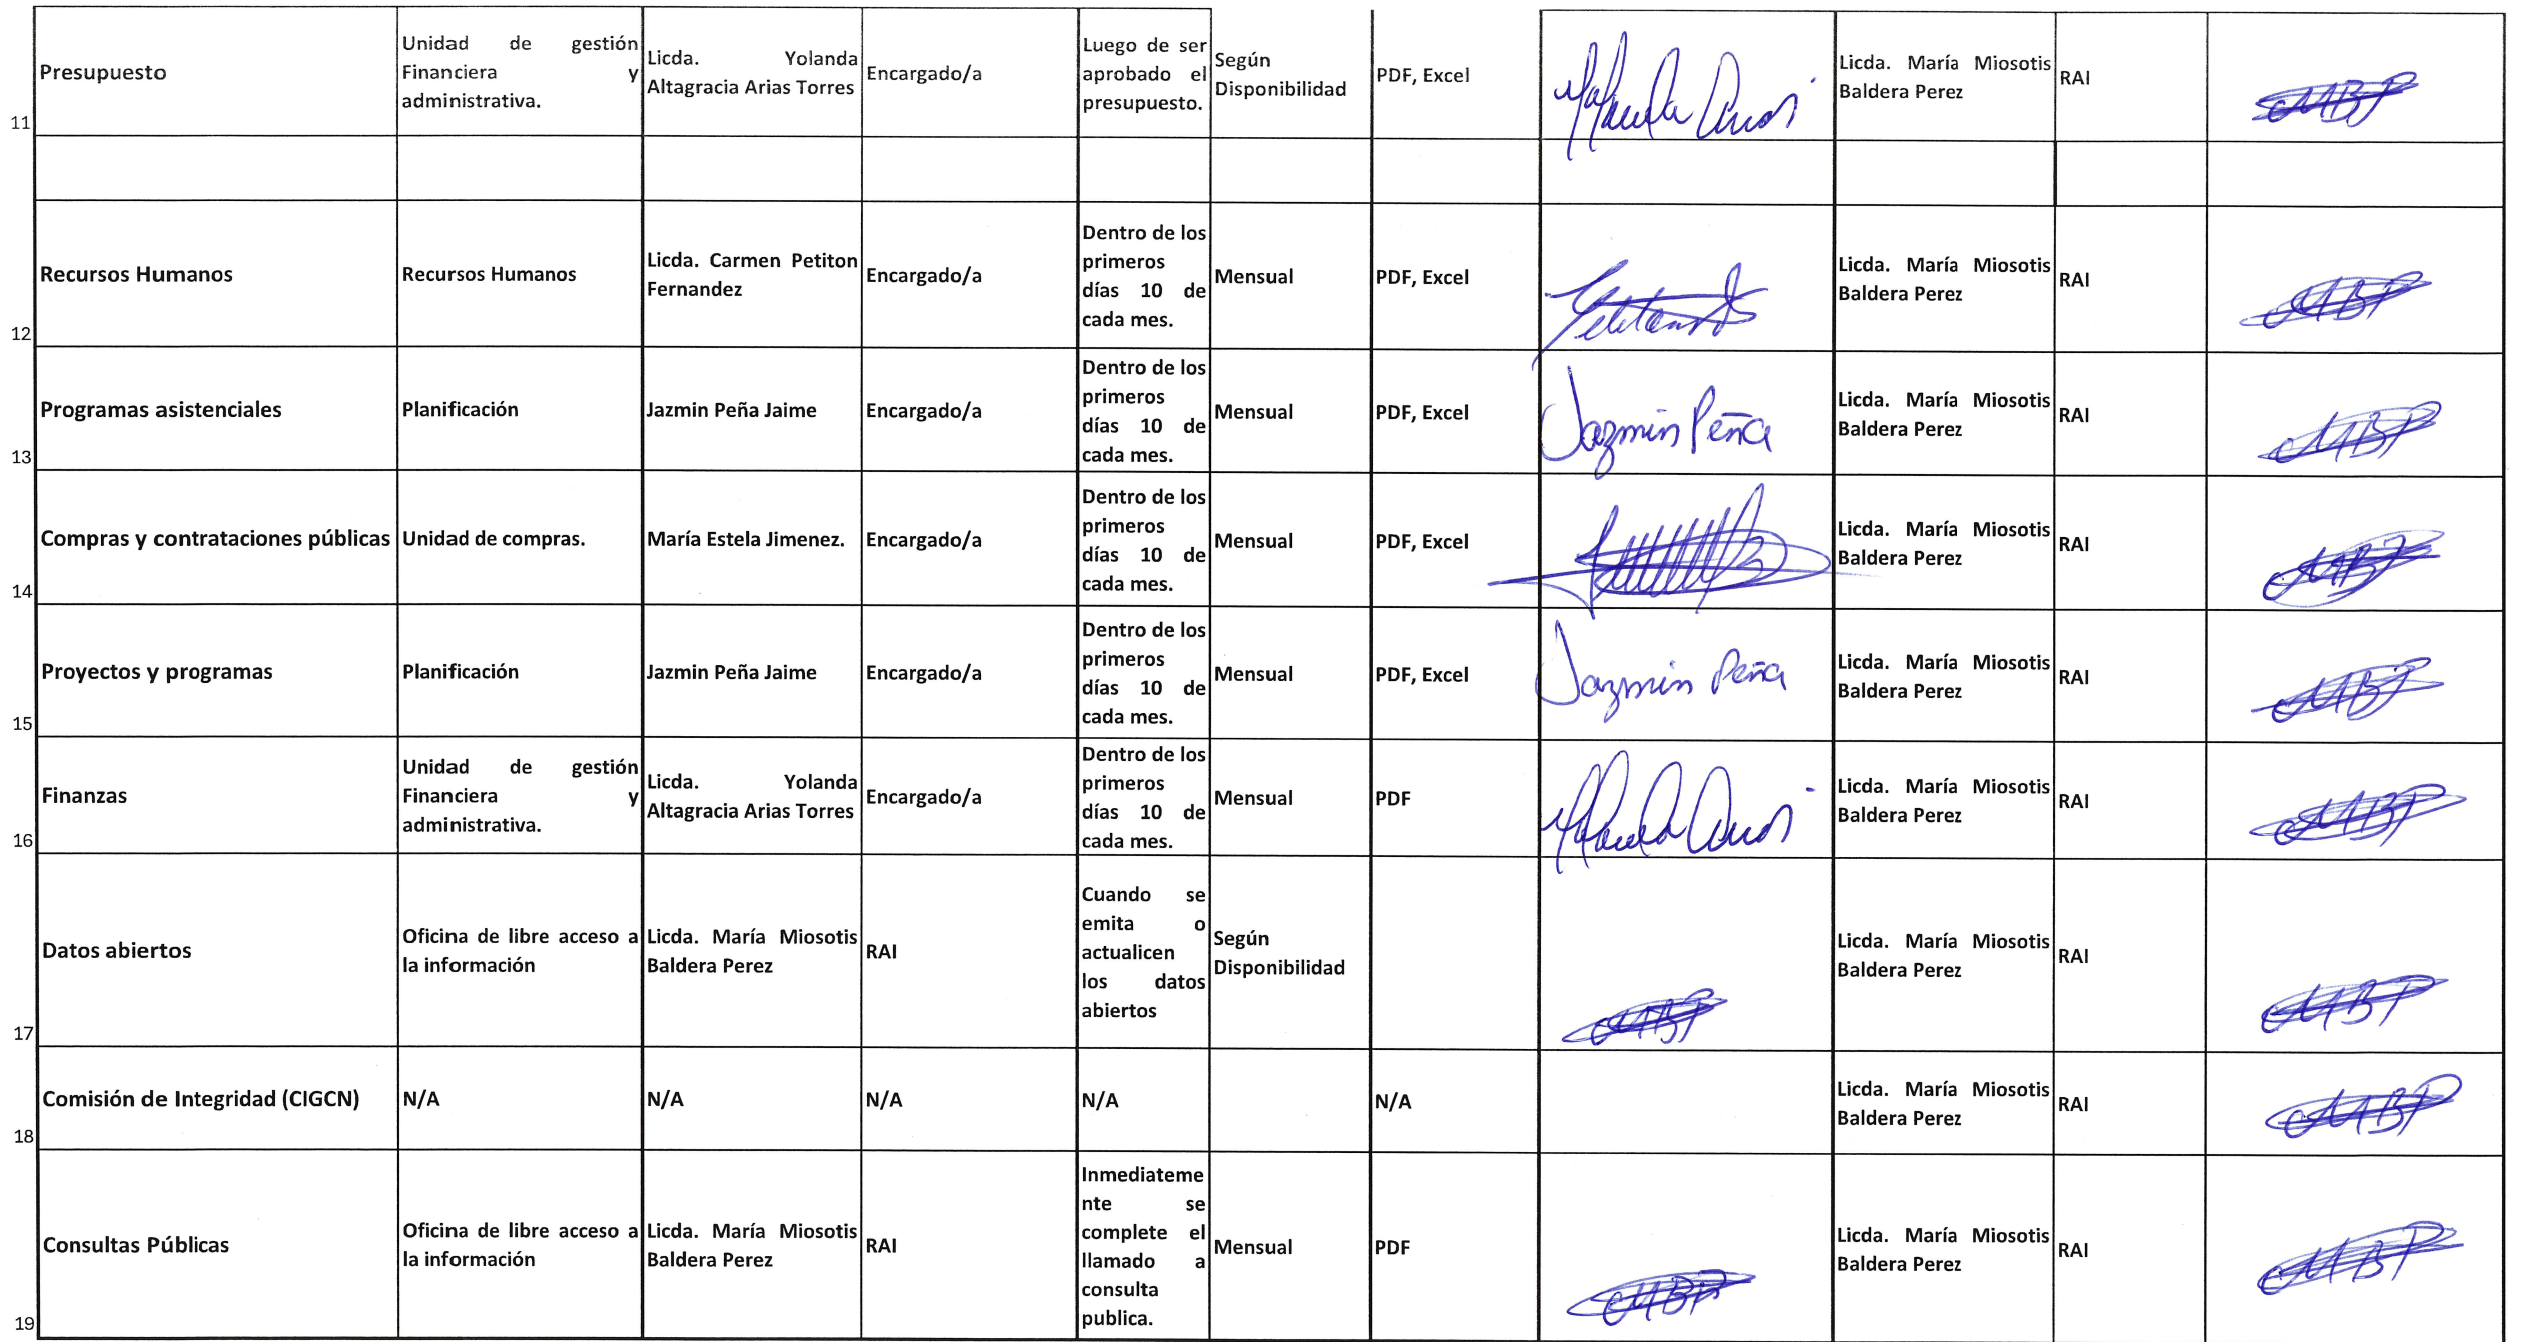 Presupuesto
Unidad de gestión
Financiera y
administrativa.
Licda. Yolanda
Altagracia Arias Torres
Encargado/a
Luego de ser
aprobado el
presupuesto.
Según
Disponibilidad
PDF, Excel
Licda. María Miosotis
Baldera Perez
RAI
MBP
11
Recursos Humanos
Recursos Humanos
Licda. Carmen Petiton
Fernandez
Encargado/a
Dentro de los
primeros
días 10 de
cada mes.
Mensual
PDF, Excel
Licda. María Miosotis
Baldera Perez
RAI
MBP
12
Programas asistenciales
Planificación
Jazmin Peña Jaime
Encargado/a
Dentro de los
primeros
días 10 de
cada mes.
Mensual
PDF, Excel
Jazmin Peña
Licda. María Miosotis
Baldera Perez
RAI
MBP
13
Compras y contrataciones públicas
Unidad de compras.
María Estela Jimenez.
Encargado/a
Dentro de los
primeros
días 10 de
cada mes.
Mensual
PDF, Excel
Licda. María Miosotis
Baldera Perez
RAI
MBP
14
Proyectos y programas
Planificación
Jazmin Peña Jaime
Encargado/a
Dentro de los
primeros
días 10 de
cada mes.
Mensual
PDF, Excel
Jazmin Peña
Licda. María Miosotis
Baldera Perez
RAI
MBP
15
Finanzas
Unidad de gestión
Financiera y
administrativa.
Licda. Yolanda
Altagracia Arias Torres
Encargado/a
Dentro de los
primeros
días 10 de
cada mes.
Mensual
PDF
Licda. María Miosotis
Baldera Perez
RAI
MBP
16
Datos abiertos
Oficina de libre acceso a
la información
Licda. María Miosotis
Baldera Perez
RAI
Cuando se
emita o
actualicen
los datos
abiertos
Según
Disponibilidad
MBP
Licda. María Miosotis
Baldera Perez
RAI
MBP
17
Comisión de Integridad (CIGCN)
N/A
N/A
N/A
N/A
N/A
Licda. María Miosotis
Baldera Perez
RAI
MBP
18
Consultas Públicas
Oficina de libre acceso a
la información
Licda. María Miosotis
Baldera Perez
RAI
Inmediateme
nte se
complete el
llamado a
consulta
publica.
Mensual
PDF
MBP
Licda. María Miosotis
Baldera Perez
RAI
MBP
19